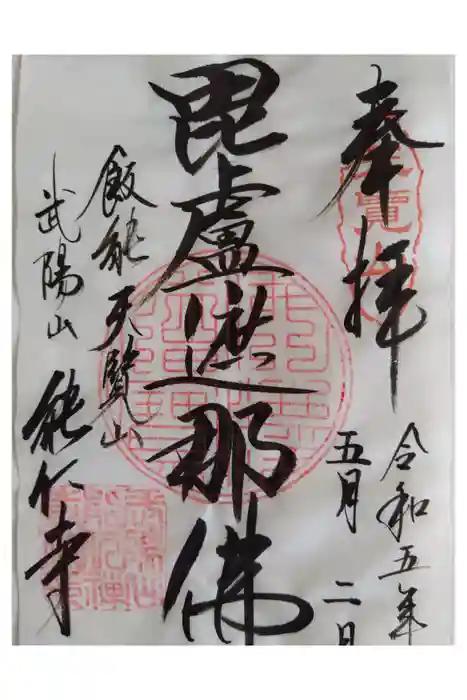 奉拝
令和五年
五月 二日
毘盧遮那佛
飯能天覧山
武陽山
能仁寺